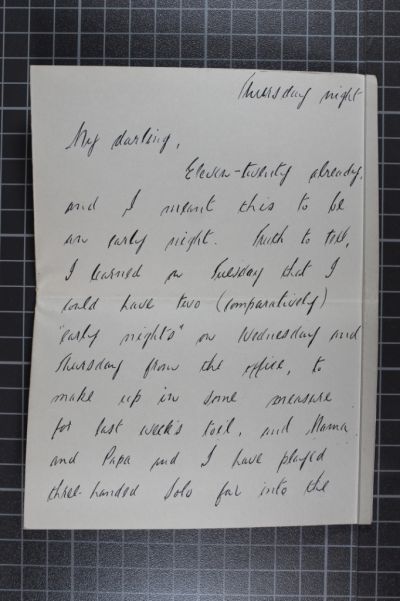 Thursday night
My darling,
Eleven-twenty already,
and I meant this to be
an early night. Truth to tell,
I learned on Tuesday that I
could have two (comparatively)
"early nights" on Wednesday and
Thursday from the office, to
make up in some measure
for last week's toil, and Mama
and Papa and I have played
three-handed Solo far into the